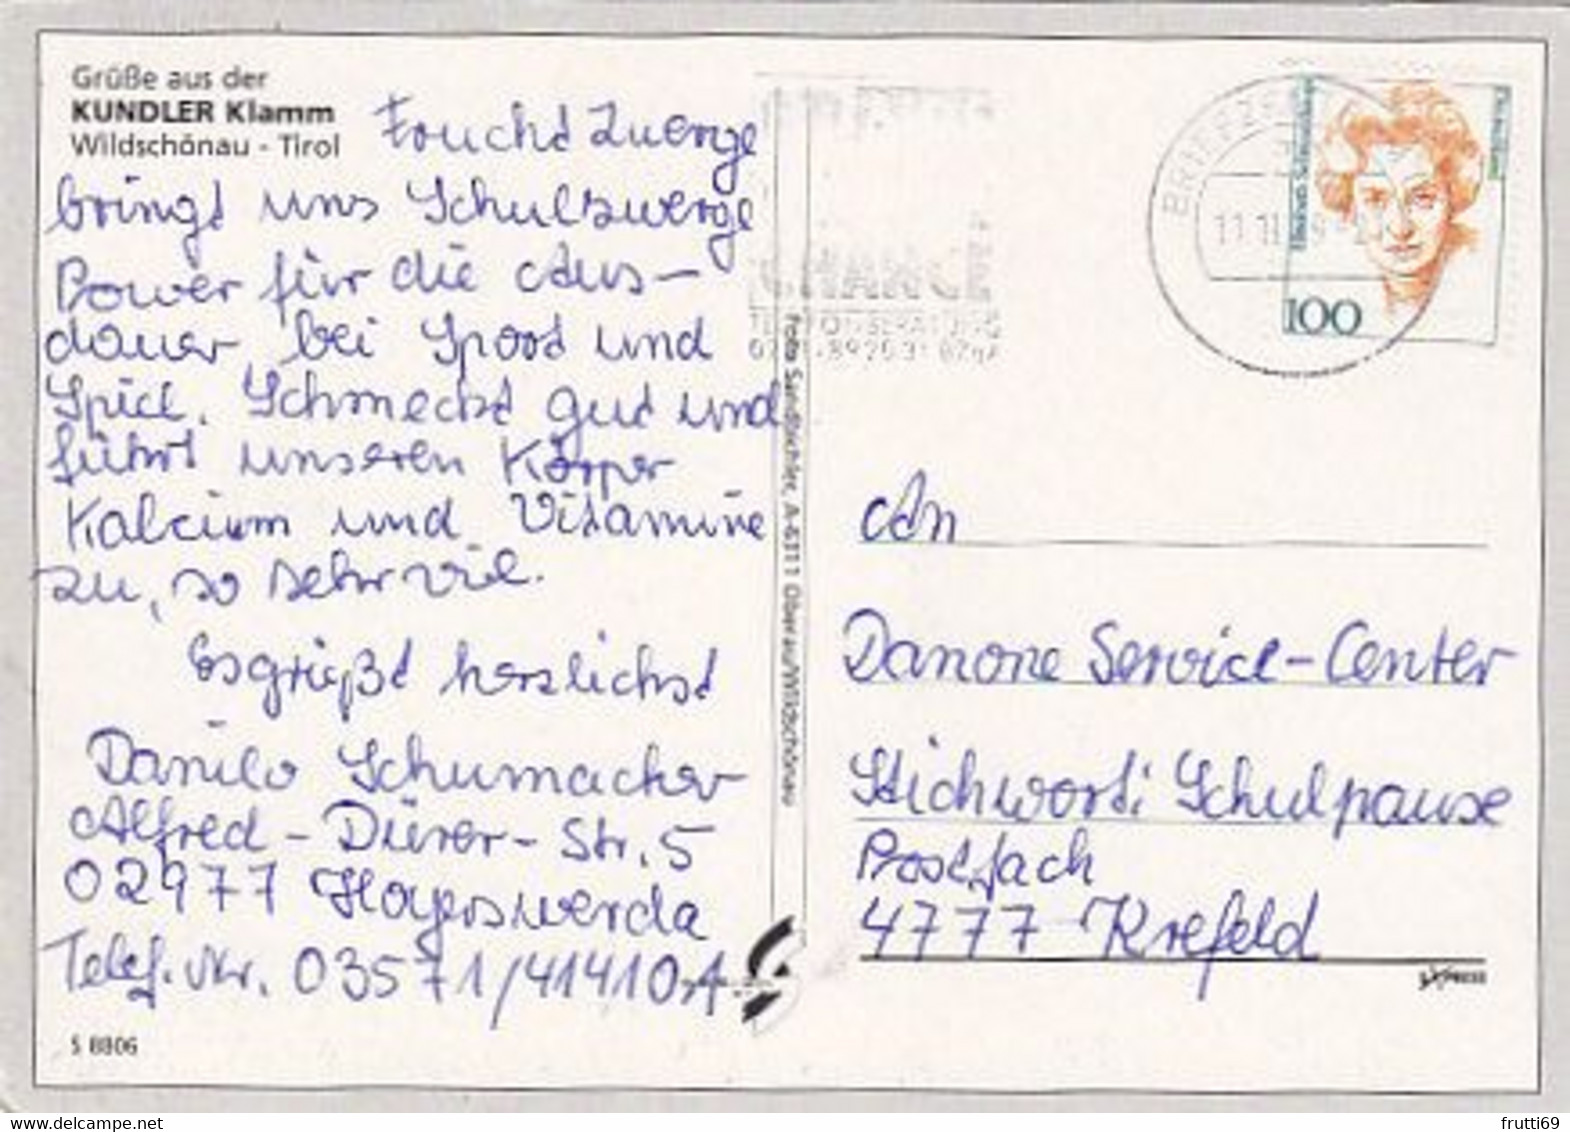 Grüße aus der
KUNDLER Klamm
Wildschönau - Tirol
Frucht Zwerge
bringt uns Schulzwerge
Power für die Aus-
dauer, bei Sport und
Spiel. Schmeckt gut und
führt unseren Körper
Kalcium und Vitamine
zu, so sehr viel.
Es grüßt herzlichst
Danilo Schumacher
Alfred-Dürer-Str. 5
02977 Hoyerswerda
Telef. Nr. 03571/414101
S 8806
Foto Sandbichler, A-6311 Oberau/Wildschönau
CHANCE
TELEFONBERATUNG
BRIEFZE
11.11
100
An
Danone Service-Center
Stichwort: Schulpause
Postfach
4777 Krefeld
EXPRESS
delcampe.net
frutti69